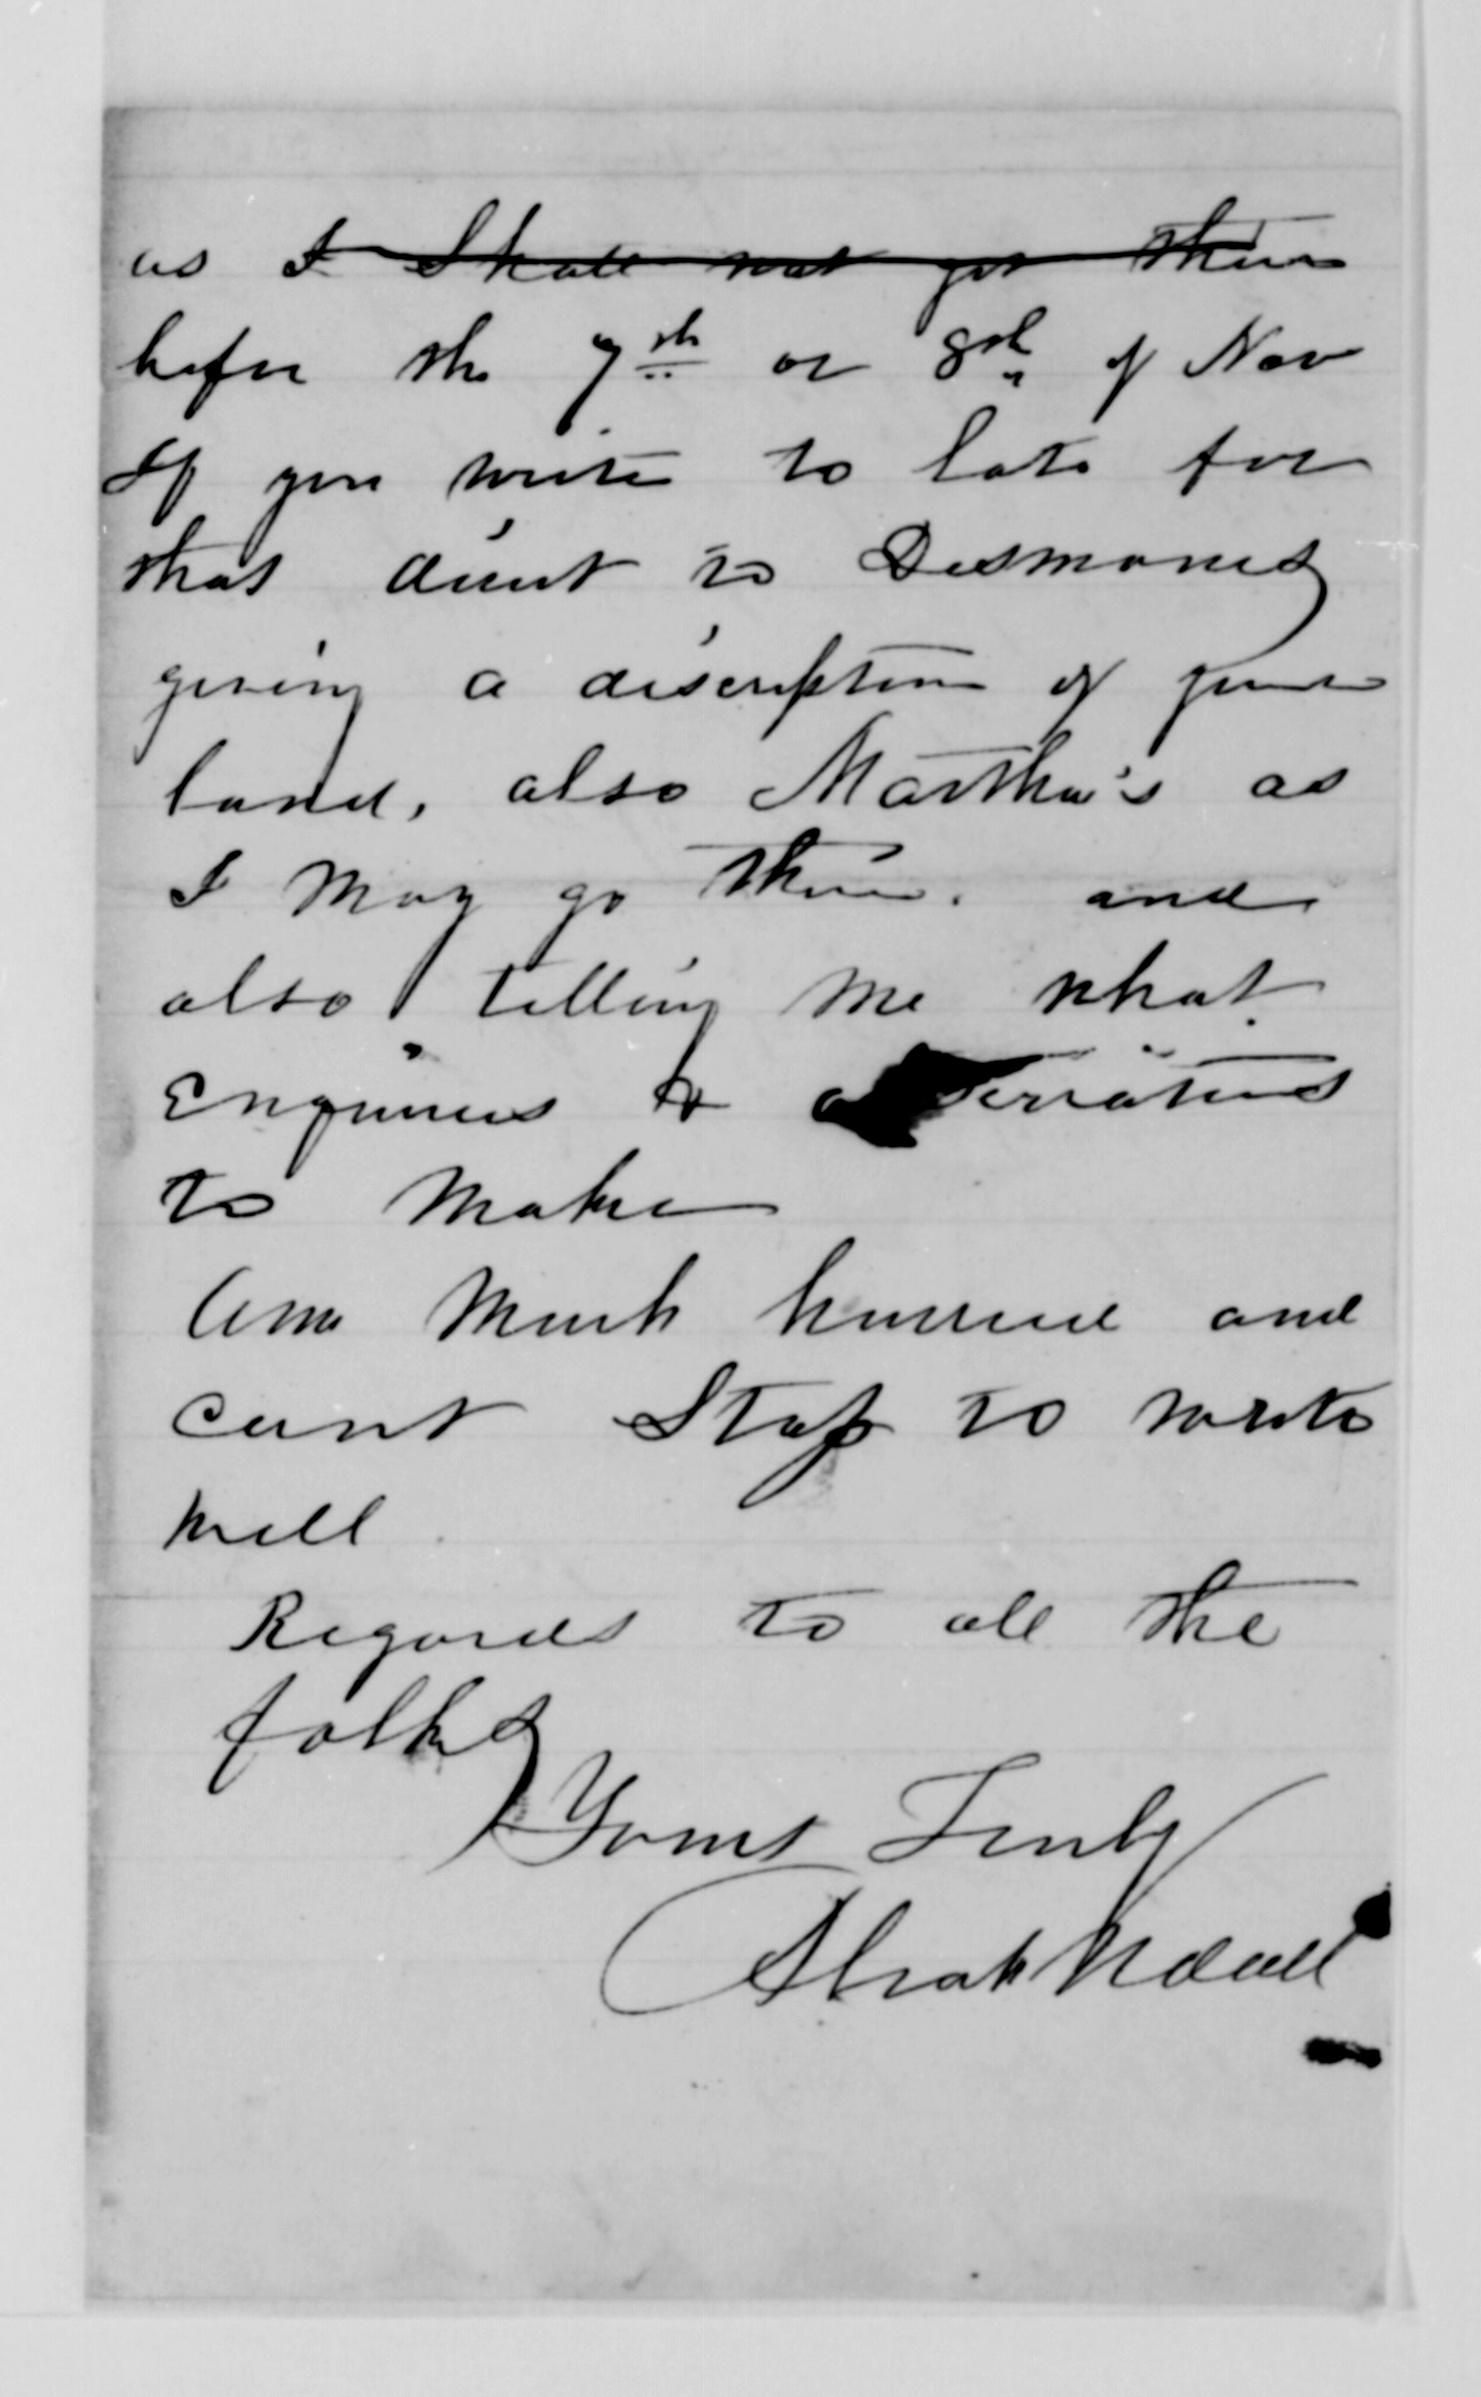 as I shall not get there
before the 7th or 8th of Nov
If you write to late for
that direct to Desmoines
giving a discription of your
land, also Martha's as
I may go there. and
also telling me what
Enquiries & observations
to make
Am much hurried and
cant stop to write
well
Regards to all the
folks
Yours Truly
Abiah Udall